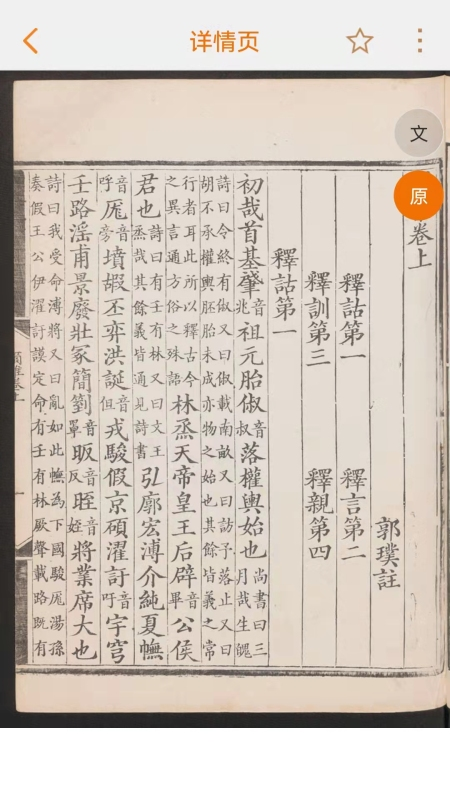 详情页
文
原
卷上
郭璞註
釋詁第一 釋言第二
釋訓第三 釋親第四
釋詁第一
初哉首基肇音兆祖元胎俶音叔落權輿始也尚書曰三月哉生魄
詩曰令終有俶又曰俶載南畝又曰訪予落止又曰胡不承權輿胚胎未成亦物之始也其餘皆義之常
行者耳此所以釋古今之異言通方俗之殊語林烝天帝皇王后辟音畢公侯
君也詩曰有壬有林又曰文王烝哉其餘義皆通見詩書弘廓宏溥介純夏幠
音呼厖音旁墳嘏丕弈洪誕音但戎駿假京碩濯訏音吁宇穹
壬路淫甫景廢壯冢簡箌音罩昄音反晊音姪將業席大也
詩曰我受命溥將又曰亂如此幠為下國駿厖湯孫奏假王公伊濯訏謨定命有壬有林厥聲載路既有
爾雅卷上